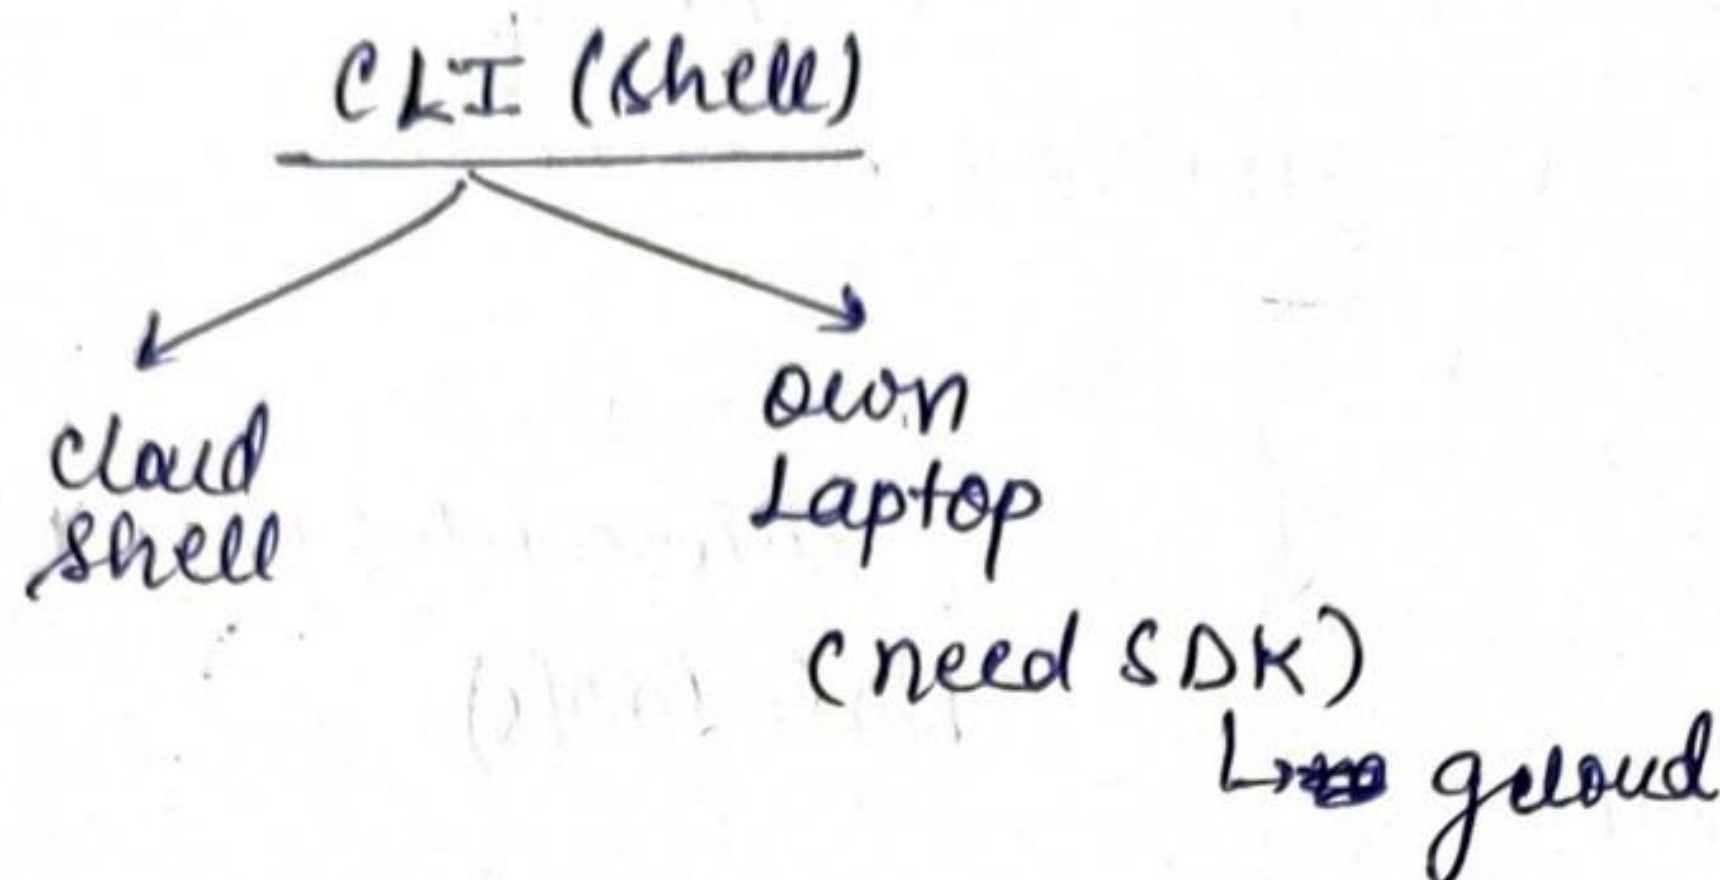 CLI (Shell)
Cloud
Shell
Own
Laptop
(need SDK)
gcloud